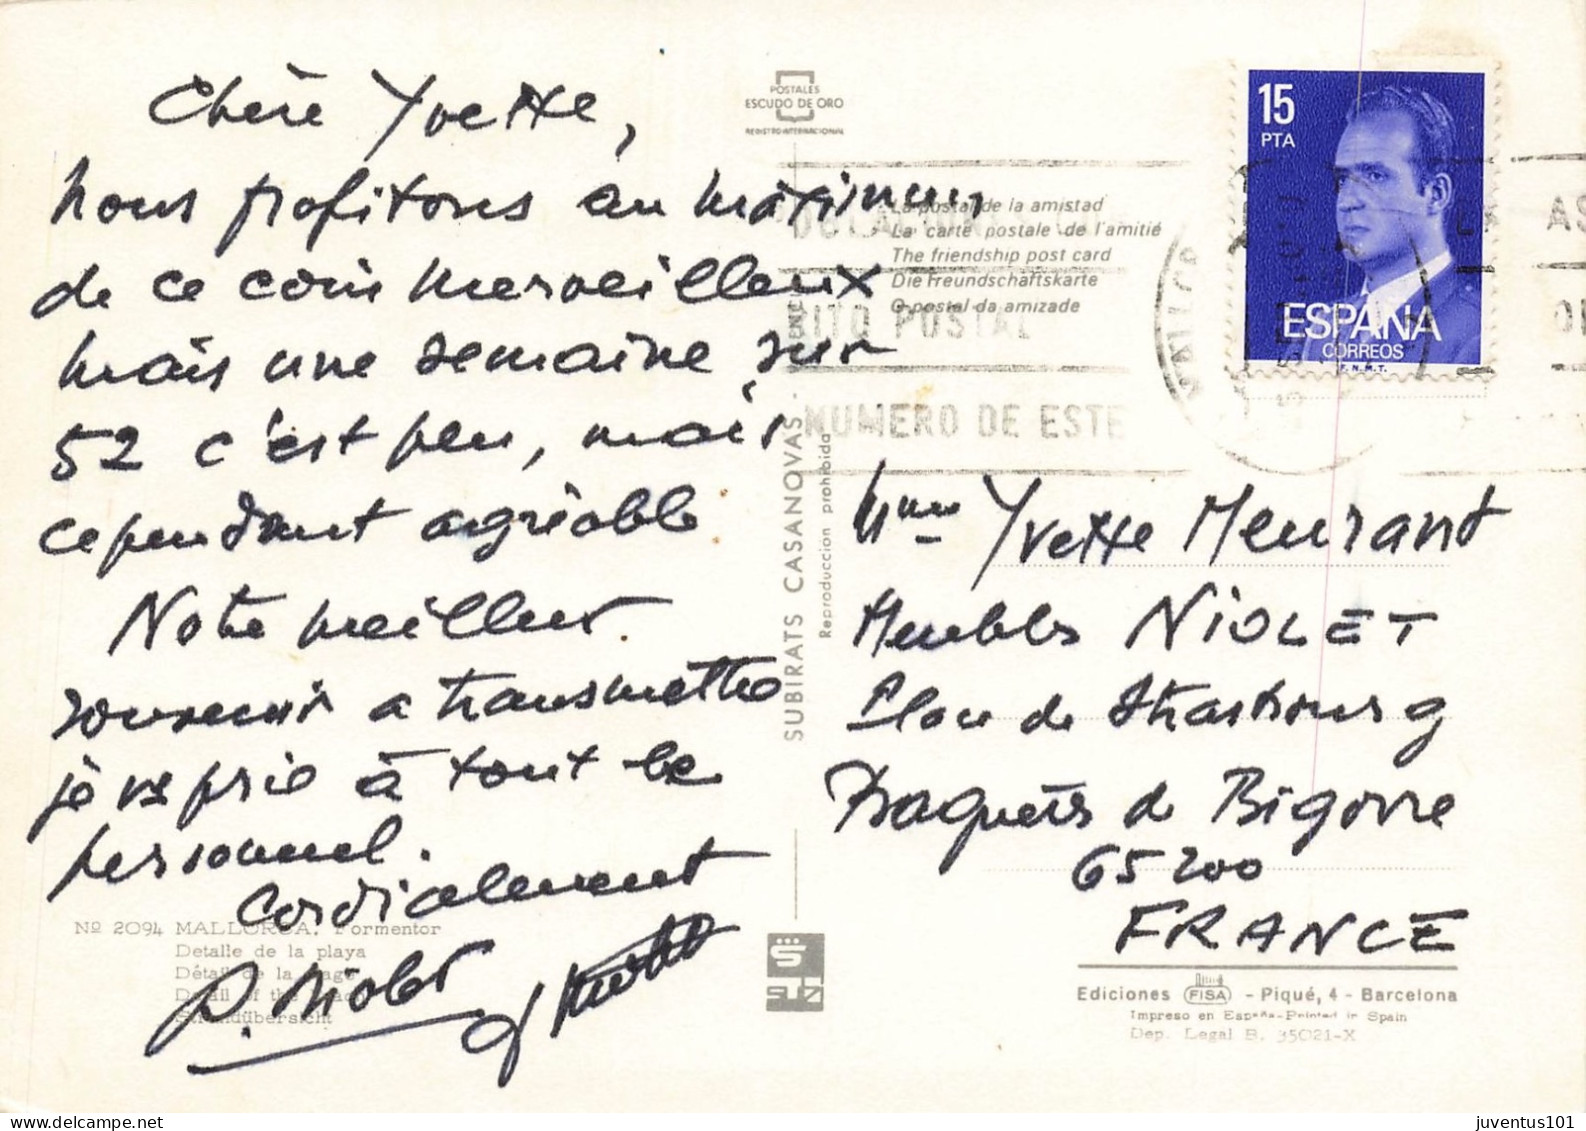 Chère Yvette,
nous profitons au maximum
de ce coin merveilleux
mais une semaine sur
52 c'est peu, mais
cependant agréable
Notre meilleur
souvenir a transmettre
je vs prie à tout le
personnel.
Cordialement
D. Niolet
Nº 2094 MALLORCA. Formentor
Detalle de la playa
Détail de la plage
Detail of the beach
Strandübersicht
POSTALES
ESCUDO DE ORO
REGISTRO INTERNACIONAL
La postal de la amistad
La carte postale de l'amitié
The friendship post card
Die Freundschaftskarte
O postal da amizade
POSTAL
NUMERO DE ESTE
SUBIRATS CASANOVAS
Reproduccion prohibida
15
PTA
ESPAÑA
CORREOS
F.N.M.T.
Mme Yvette Meurant
Meubles NIOLET
Place de Strasbourg
Bagnères de Bigorre
65200
FRANCE
Ediciones FISA - Piqué, 4 - Barcelona
Impreso en España-Printed in Spain
Dep. Legal B. 35021-X
juventus101